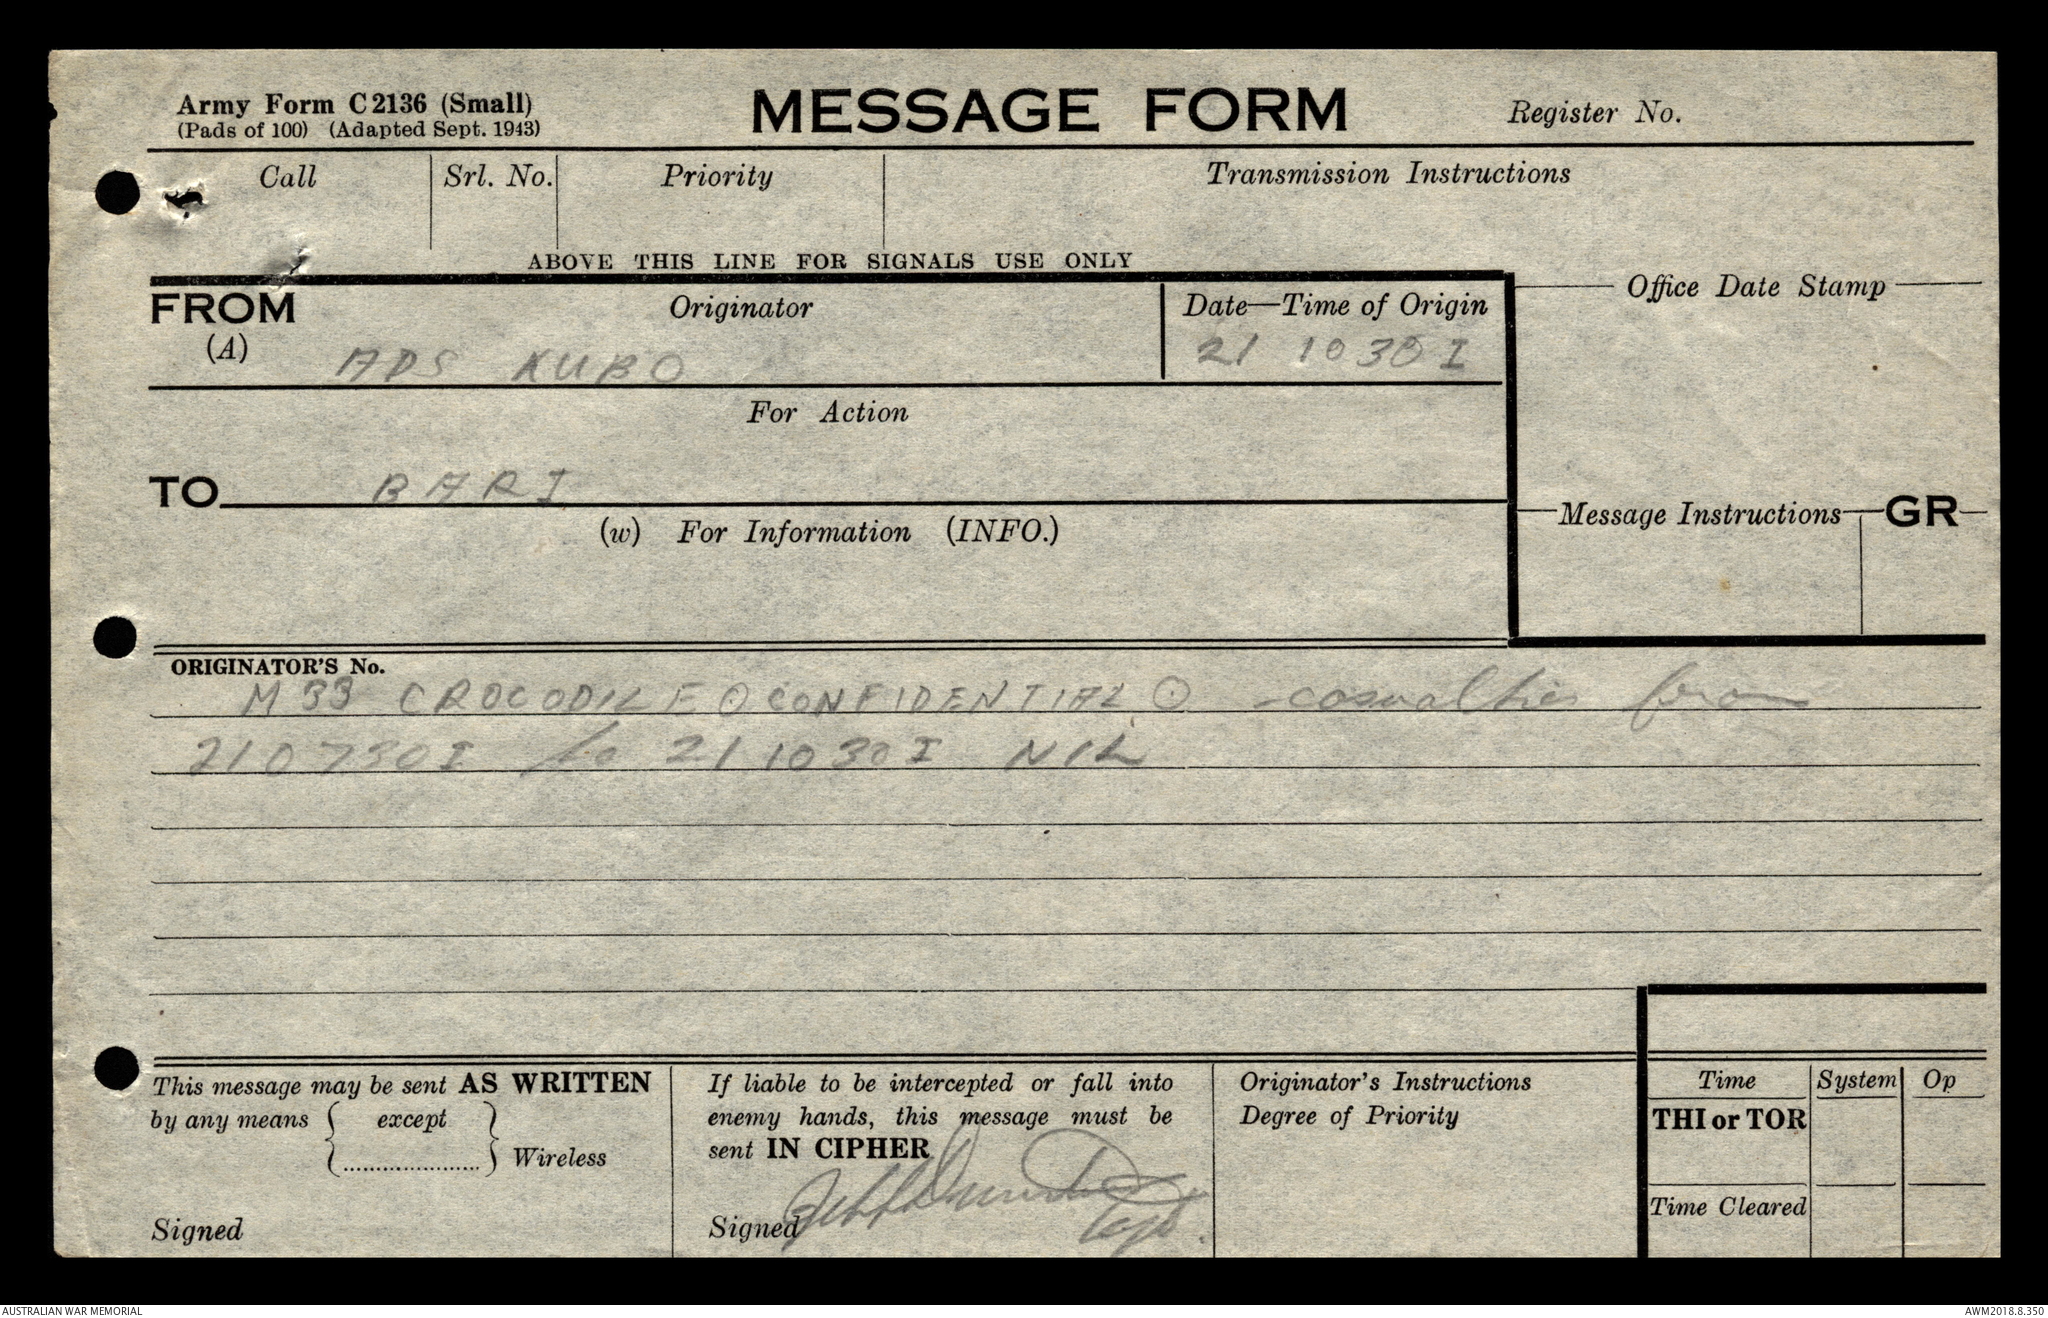 Army Form C2136 (Small)
(Pads of 100) (Adapted Sept. 1943)
MESSAGE FORM
Register No.
Call
Srl. No.
Priority
Transmission Instructions
ABOVE THIS LINE FOR SIGNALS USE ONLY
FROM
(A)
Originator
ADS KUBO
Date—Time of Origin
21 1030 I
Office Date Stamp
For Action
TO
BARI
(w) For Information (INFO.)
Message Instructions
GR
ORIGINATOR'S No.
M33 CROCODILE ⊙ CONFIDENTIAL ⊙ casualties from
210730I to 211030I NIL
This message may be sent AS WRITTEN
by any means { except }
{.....................} Wireless
Signed
If liable to be intercepted or fall into
enemy hands, this message must be
sent IN CIPHER
Signed
Capt.
Originator's Instructions
Degree of Priority
Time
System
Op
THI or TOR
Time Cleared
AUSTRALIAN WAR MEMORIAL
AWM2018.8.350